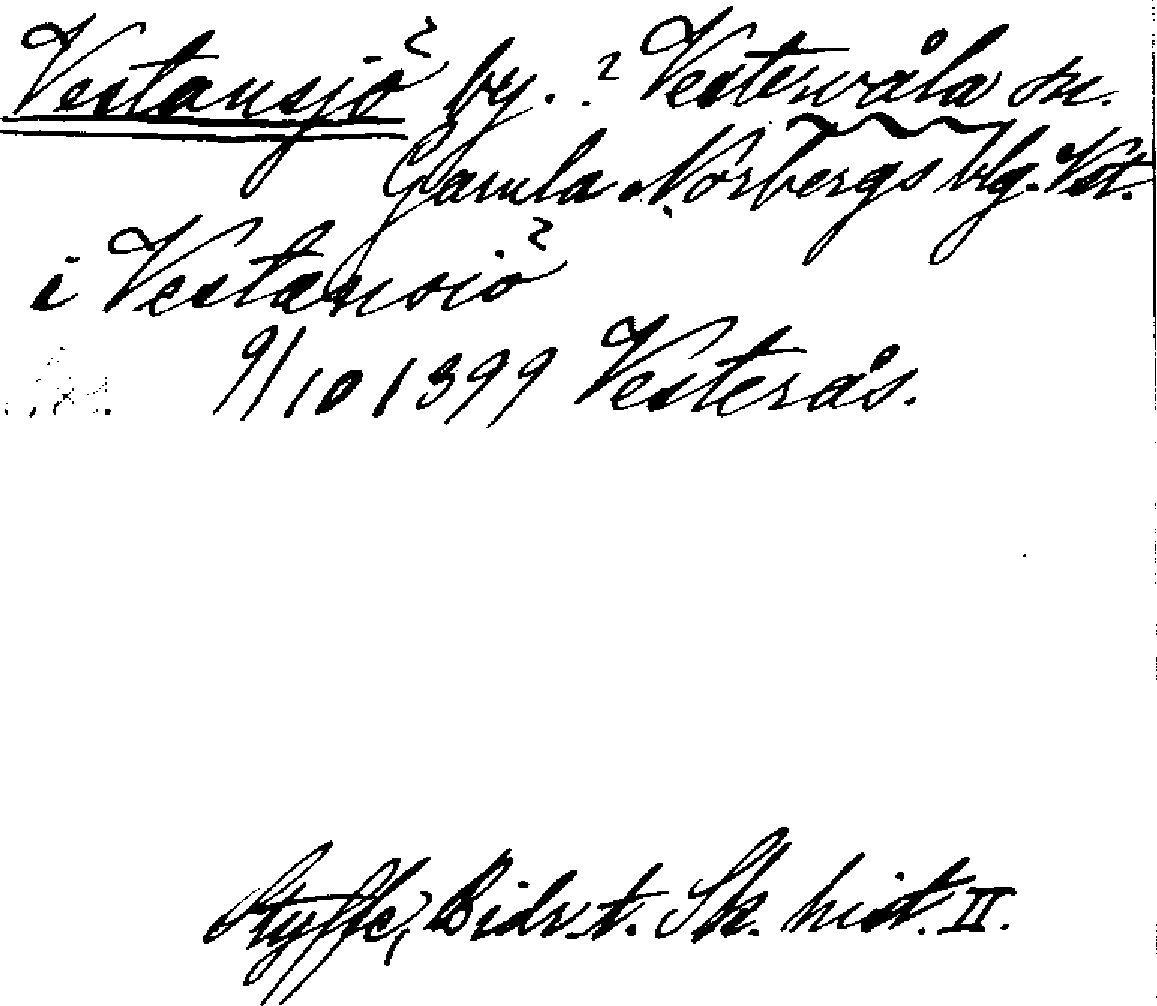 Vestansjö by. ? Vestervåla sn.
Gamla Norbergs blg. Vst.
i Vestansiö
9/10 1399 Vesterås.
Styffe, Bidr. t. Sk. hist. II.